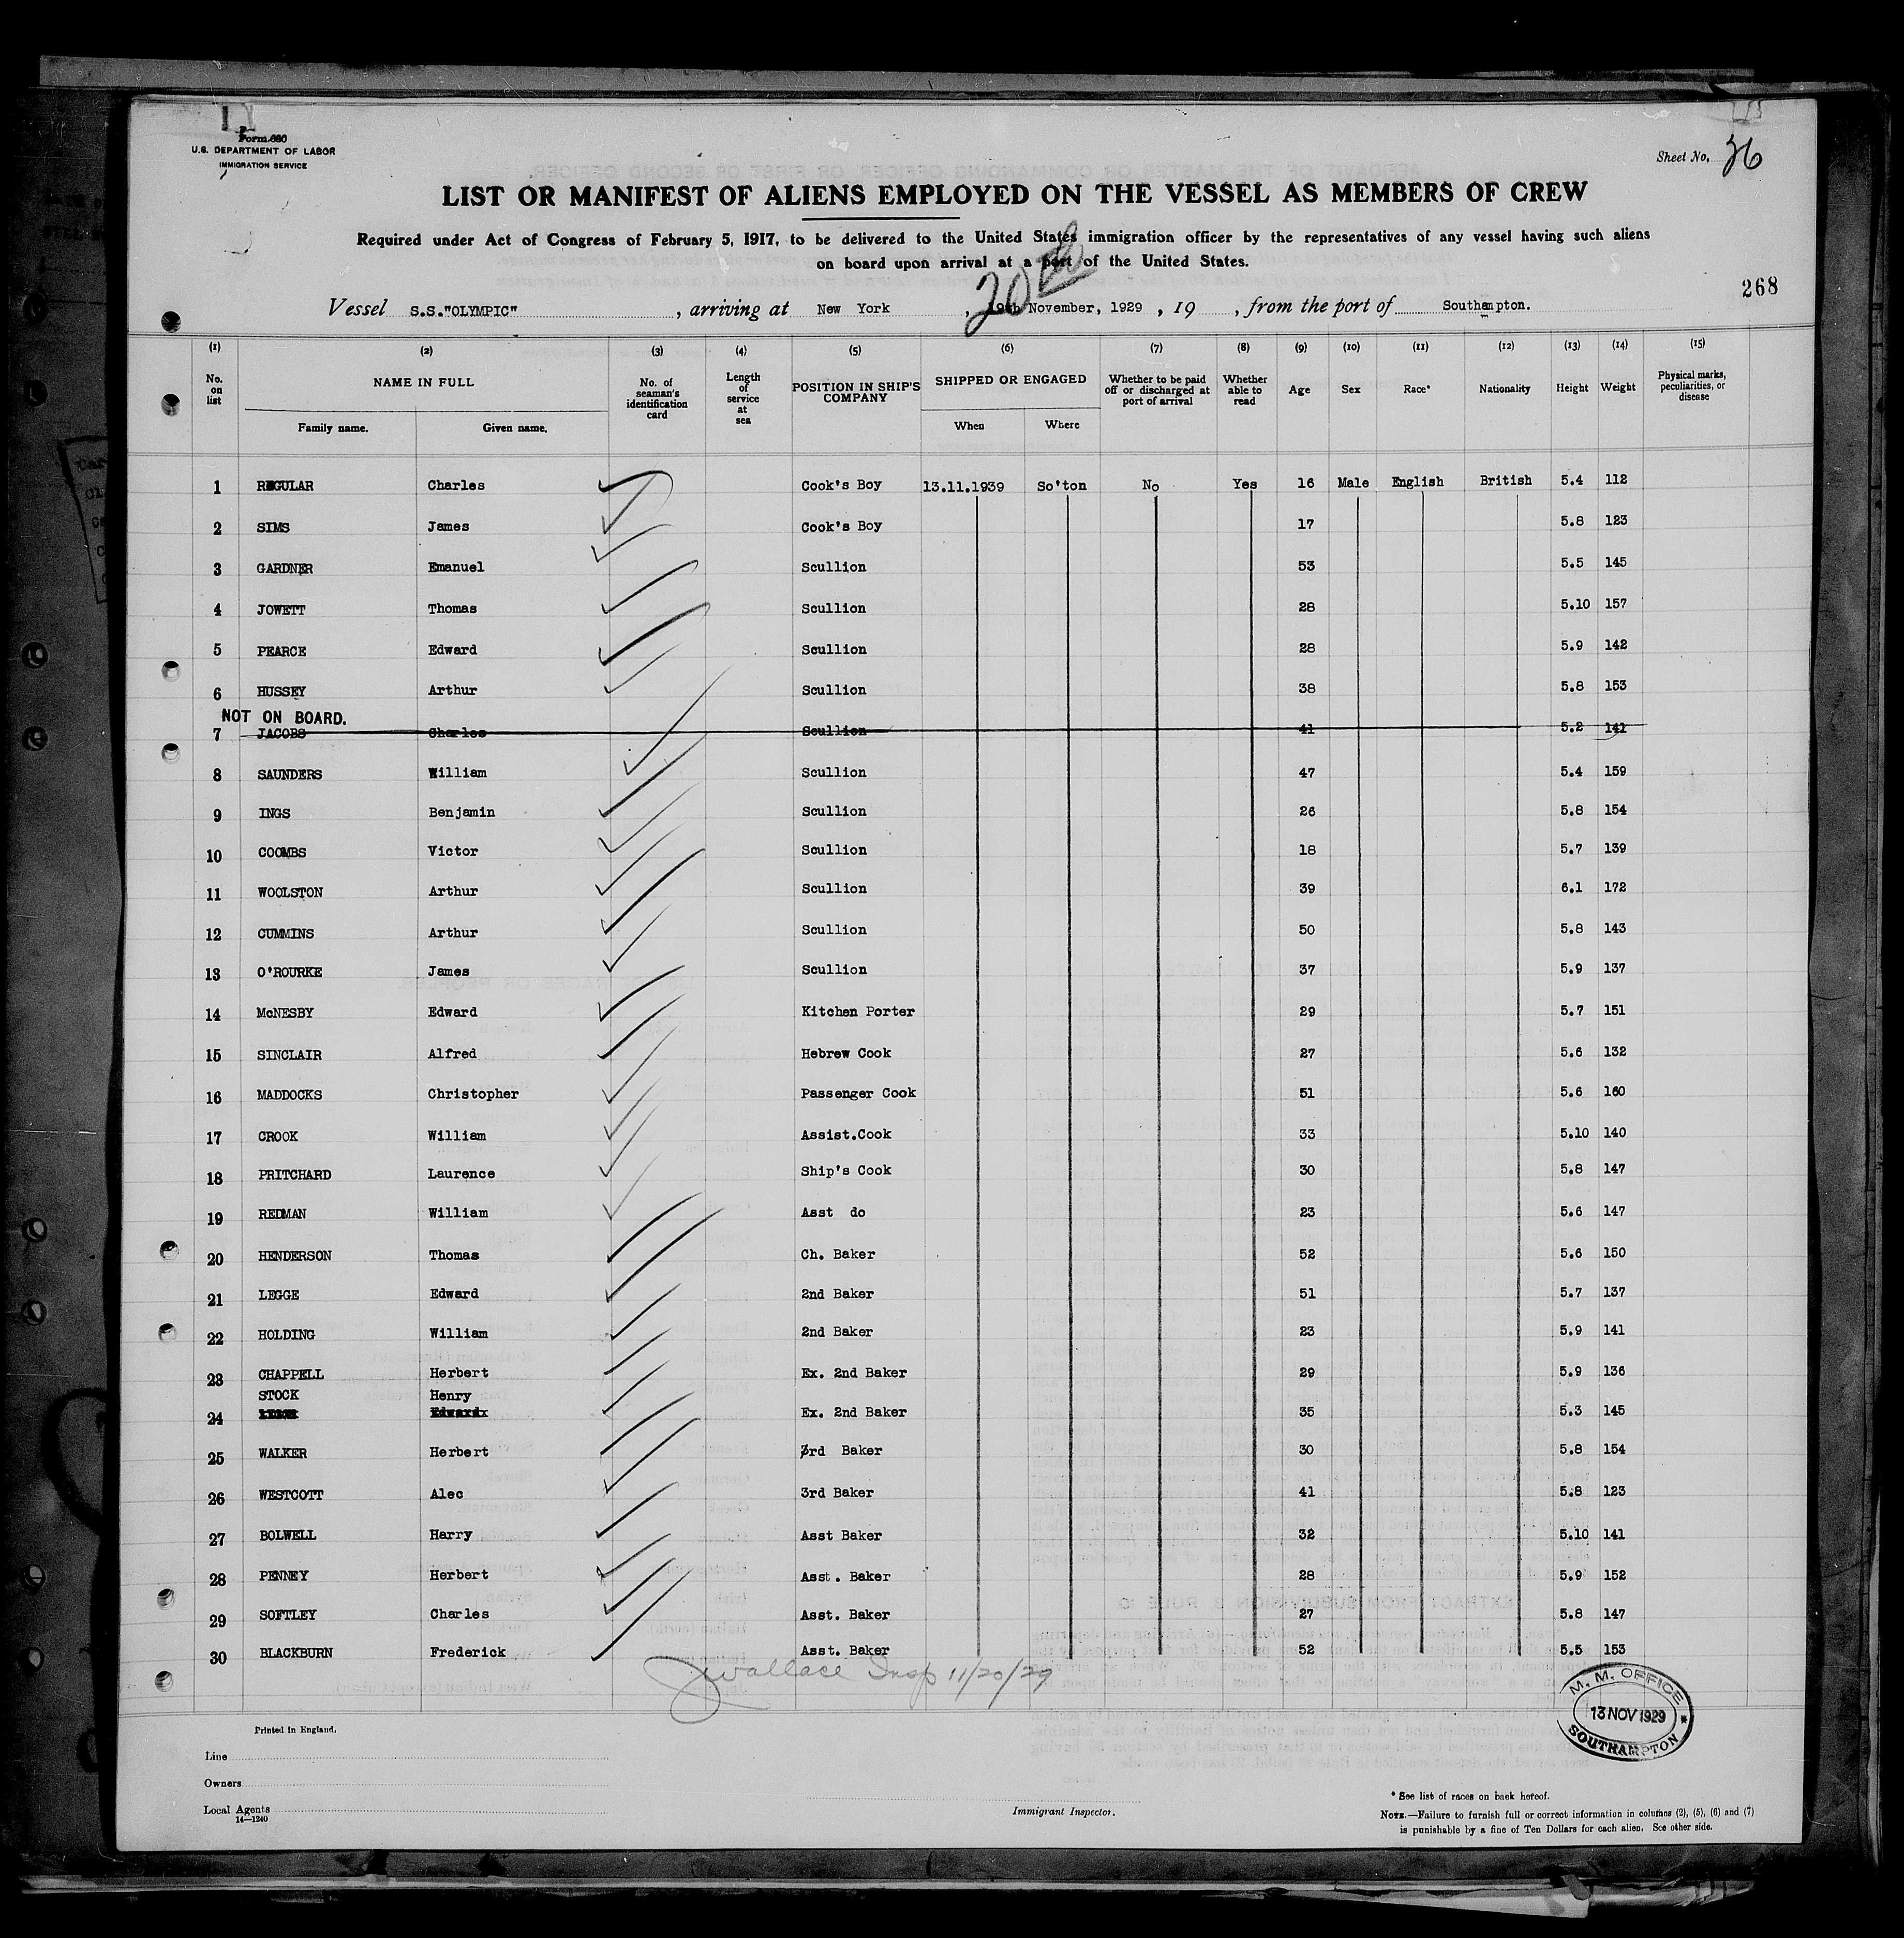 Form 680
U.S. DEPARTMENT OF LABOR
IMMIGRATION SERVICE
Sheet No. 36
LIST OR MANIFEST OF ALIENS EMPLOYED ON THE VESSEL AS MEMBERS OF CREW
Required under Act of Congress of February 5, 1917, to be delivered to the United States immigration officer by the representatives of any vessel having such aliens
on board upon arrival at a port of the United States.
268
Vessel S.S."OLYMPIC", arriving at New York, 20th 19th November, 1929, 19 , from the port of Southampton.
(1) (2) (3) (4) (5) (6) (7) (8) (9) (10) (11) (12) (13) (14) (15)
No. on list NAME IN FULL Family name. Given name. No. of seaman's identification card Length of service at sea POSITION IN SHIP'S COMPANY SHIPPED OR ENGAGED When Where Whether to be paid off or discharged at port of arrival Whether able to read Age Sex Race* Nationality Height Weight Physical marks, peculiarities, or disease
1 REGULAR Charles Cook's Boy 13.11.1939 So'ton No Yes 16 Male English British 5.4 112
2 SIMS James Cook's Boy 17 5.8 123
3 GARDNER Emanuel Scullion 53 5.5 145
4 JOWETT Thomas Scullion 28 5.10 157
5 PEARCE Edward Scullion 28 5.9 142
6 HUSSEY Arthur Scullion 38 5.8 153
NOT ON BOARD.
7 JACOBS Charles Scullion 41 5.2 141
8 SAUNDERS William Scullion 47 5.4 159
9 INGS Benjamin Scullion 26 5.8 154
10 COOMBS Victor Scullion 18 5.7 139
11 WOOLSTON Arthur Scullion 39 6.1 172
12 CUMMINS Arthur Scullion 50 5.8 143
13 O'ROURKE James Scullion 37 5.9 137
14 McNESBY Edward Kitchen Porter 29 5.7 151
15 SINCLAIR Alfred Hebrew Cook 27 5.6 132
16 MADDOCKS Christopher Passenger Cook 51 5.6 160
17 CROOK William Assist.Cook 33 5.10 140
18 PRITCHARD Laurence Ship's Cook 30 5.8 147
19 REDMAN William Asst do 23 5.6 147
20 HENDERSON Thomas Ch. Baker 52 5.6 150
21 LEGGE Edward 2nd Baker 51 5.7 137
22 HOLDING William 2nd Baker 23 5.9 141
23 CHAPPELL Herbert Ex. 2nd Baker 29 5.9 136
STOCK Henry
24 Edward Ex. 2nd Baker 35 5.3 145
25 WALKER Herbert 3rd Baker 30 5.8 154
26 WESTCOTT Alec 3rd Baker 41 5.8 123
27 BOLWELL Harry Asst Baker 32 5.10 141
28 PENNEY Herbert Asst. Baker 28 5.9 152
29 SOFTLEY Charles Asst. Baker 27 5.8 147
30 BLACKBURN Frederick Asst. Baker 52 5.5 153
Jwallace Insp 11/20/29
M. M. OFFICE
13 NOV 1929
SOUTHAMPTON
Printed in England.
Line
Owners
Local Agents
14—1240
Immigrant Inspector.
* See list of races on back hereof.
NOTE.—Failure to furnish full or correct information in columns (2), (5), (6) and (7)
is punishable by a fine of Ten Dollars for each alien. See other side.